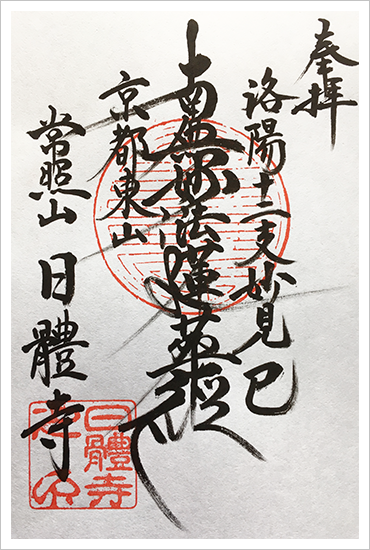 奉拝
洛陽十二支妙見 巳
南無妙法蓮華経
京都東山
常照山 日體寺
日體寺